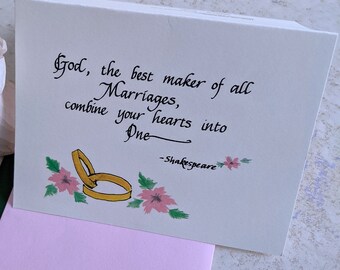 God, the best maker of all
Marriages,
combine your hearts into
One
-Shakespeare